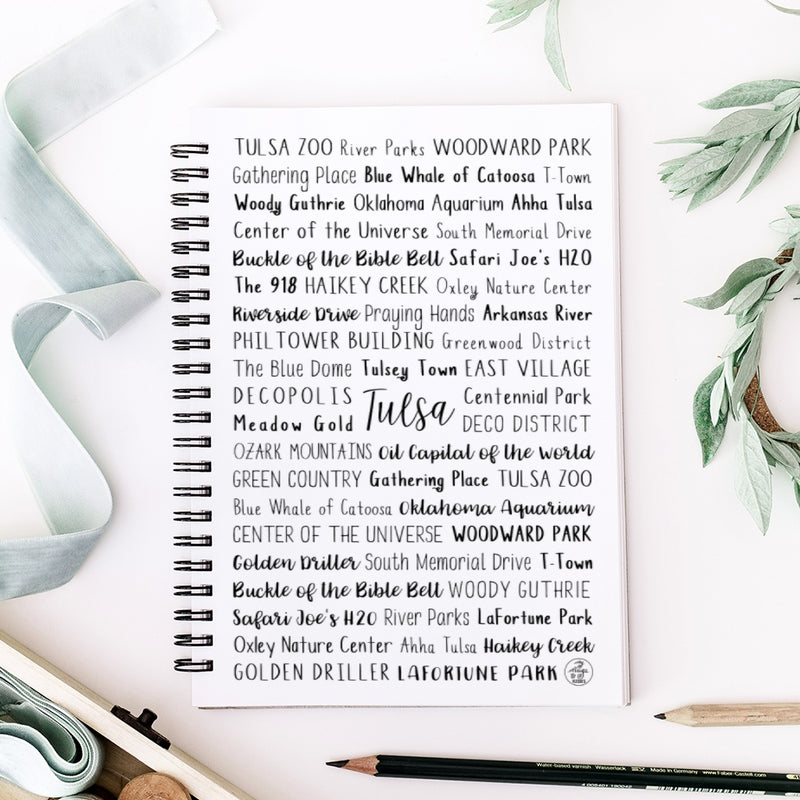 TULSA ZOO River Parks WOODWARD PARK
Gathering Place Blue Whale of Catoosa T-Town
Woody Guthrie Oklahoma Aquarium Ahha Tulsa
Center of the Universe South Memorial Drive
Buckle of the Bible Bell Safari Joe's H2O
The 918 HAIKEY CREEK Oxley Nature Center
Riverside Drive Praying Hands Arkansas River
PHILTOWER BUILDING Greenwood District
The Blue Dome Tulsey Town EAST VILLAGE
DECOPOLIS Tulsa Centennial Park
Meadow Gold DECO DISTRICT
OZARK MOUNTAINS Oil Capital of the World
GREEN COUNTRY Gathering Place TULSA ZOO
Blue Whale of Catoosa Oklahoma Aquarium
CENTER OF THE UNIVERSE WOODWARD PARK
Golden Driller South Memorial Drive T-Town
Buckle of the Bible Bell WOODY GUTHRIE
Safari Joe's H2O River Parks LaFortune Park
Oxley Nature Center Ahha Tulsa Haikey Creek
GOLDEN DRILLER LAFORTUNE PARK
Water-based varnish Wasserlack Made in Germany www.Faber-Castell.com